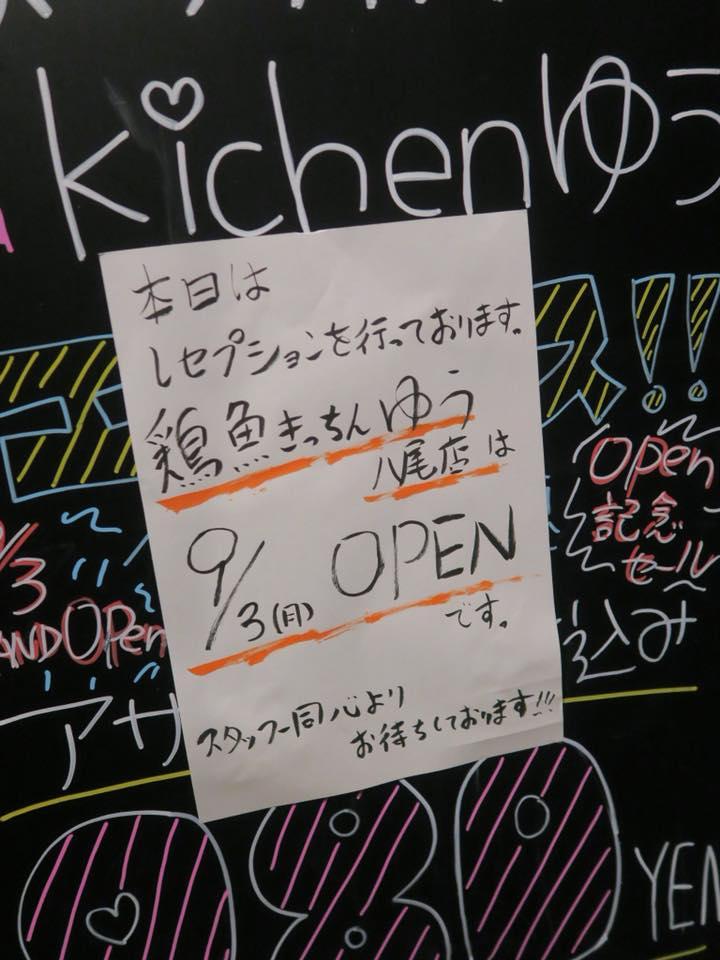 kichenゆう
本日は
レセプションを行っております。
鶏魚きっちんゆう
八尾店は
9/3(月)OPEN
です。
スタッフ一同心より
お待ちしております!!!
!!
Open
記念
セール
/3
AND OPen
アサ
込み
YEN